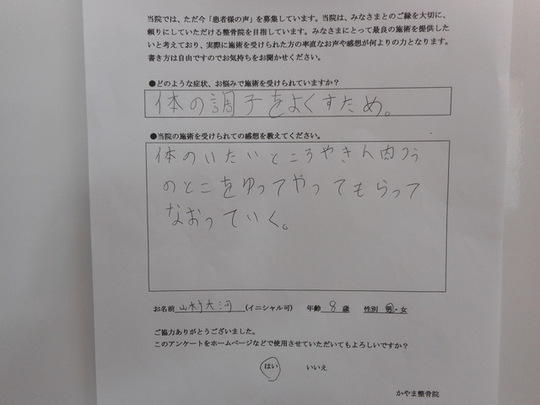 当院では、ただ今「患者様の声」を募集しています。当院は、みなさまとのご縁を大切に、
頼りにしていただける整骨院を目指しています。みなさまにとって最良の施術を提供した
いと考えており、実際に施術を受けられた方の率直なお声や感想が何よりの力となります。
書き方は自由ですのでお気持ちをお聞かせください。
●どのような症状、お悩みで施術を受けられていますか?
体の調子をよくすため。
●当院の施術を受けられての感想を教えてください。
体のいたいところやきん肉つう
のとこをゆってやってもらって
なおっていく。
お名前 山村大河 (イニシャル可) 年齢 8 歳 性別 男・女
ご協力ありがとうございました。
このアンケートをホームページなどで使用させていただいてもよろしいですか?
はい いいえ
かやま整骨院